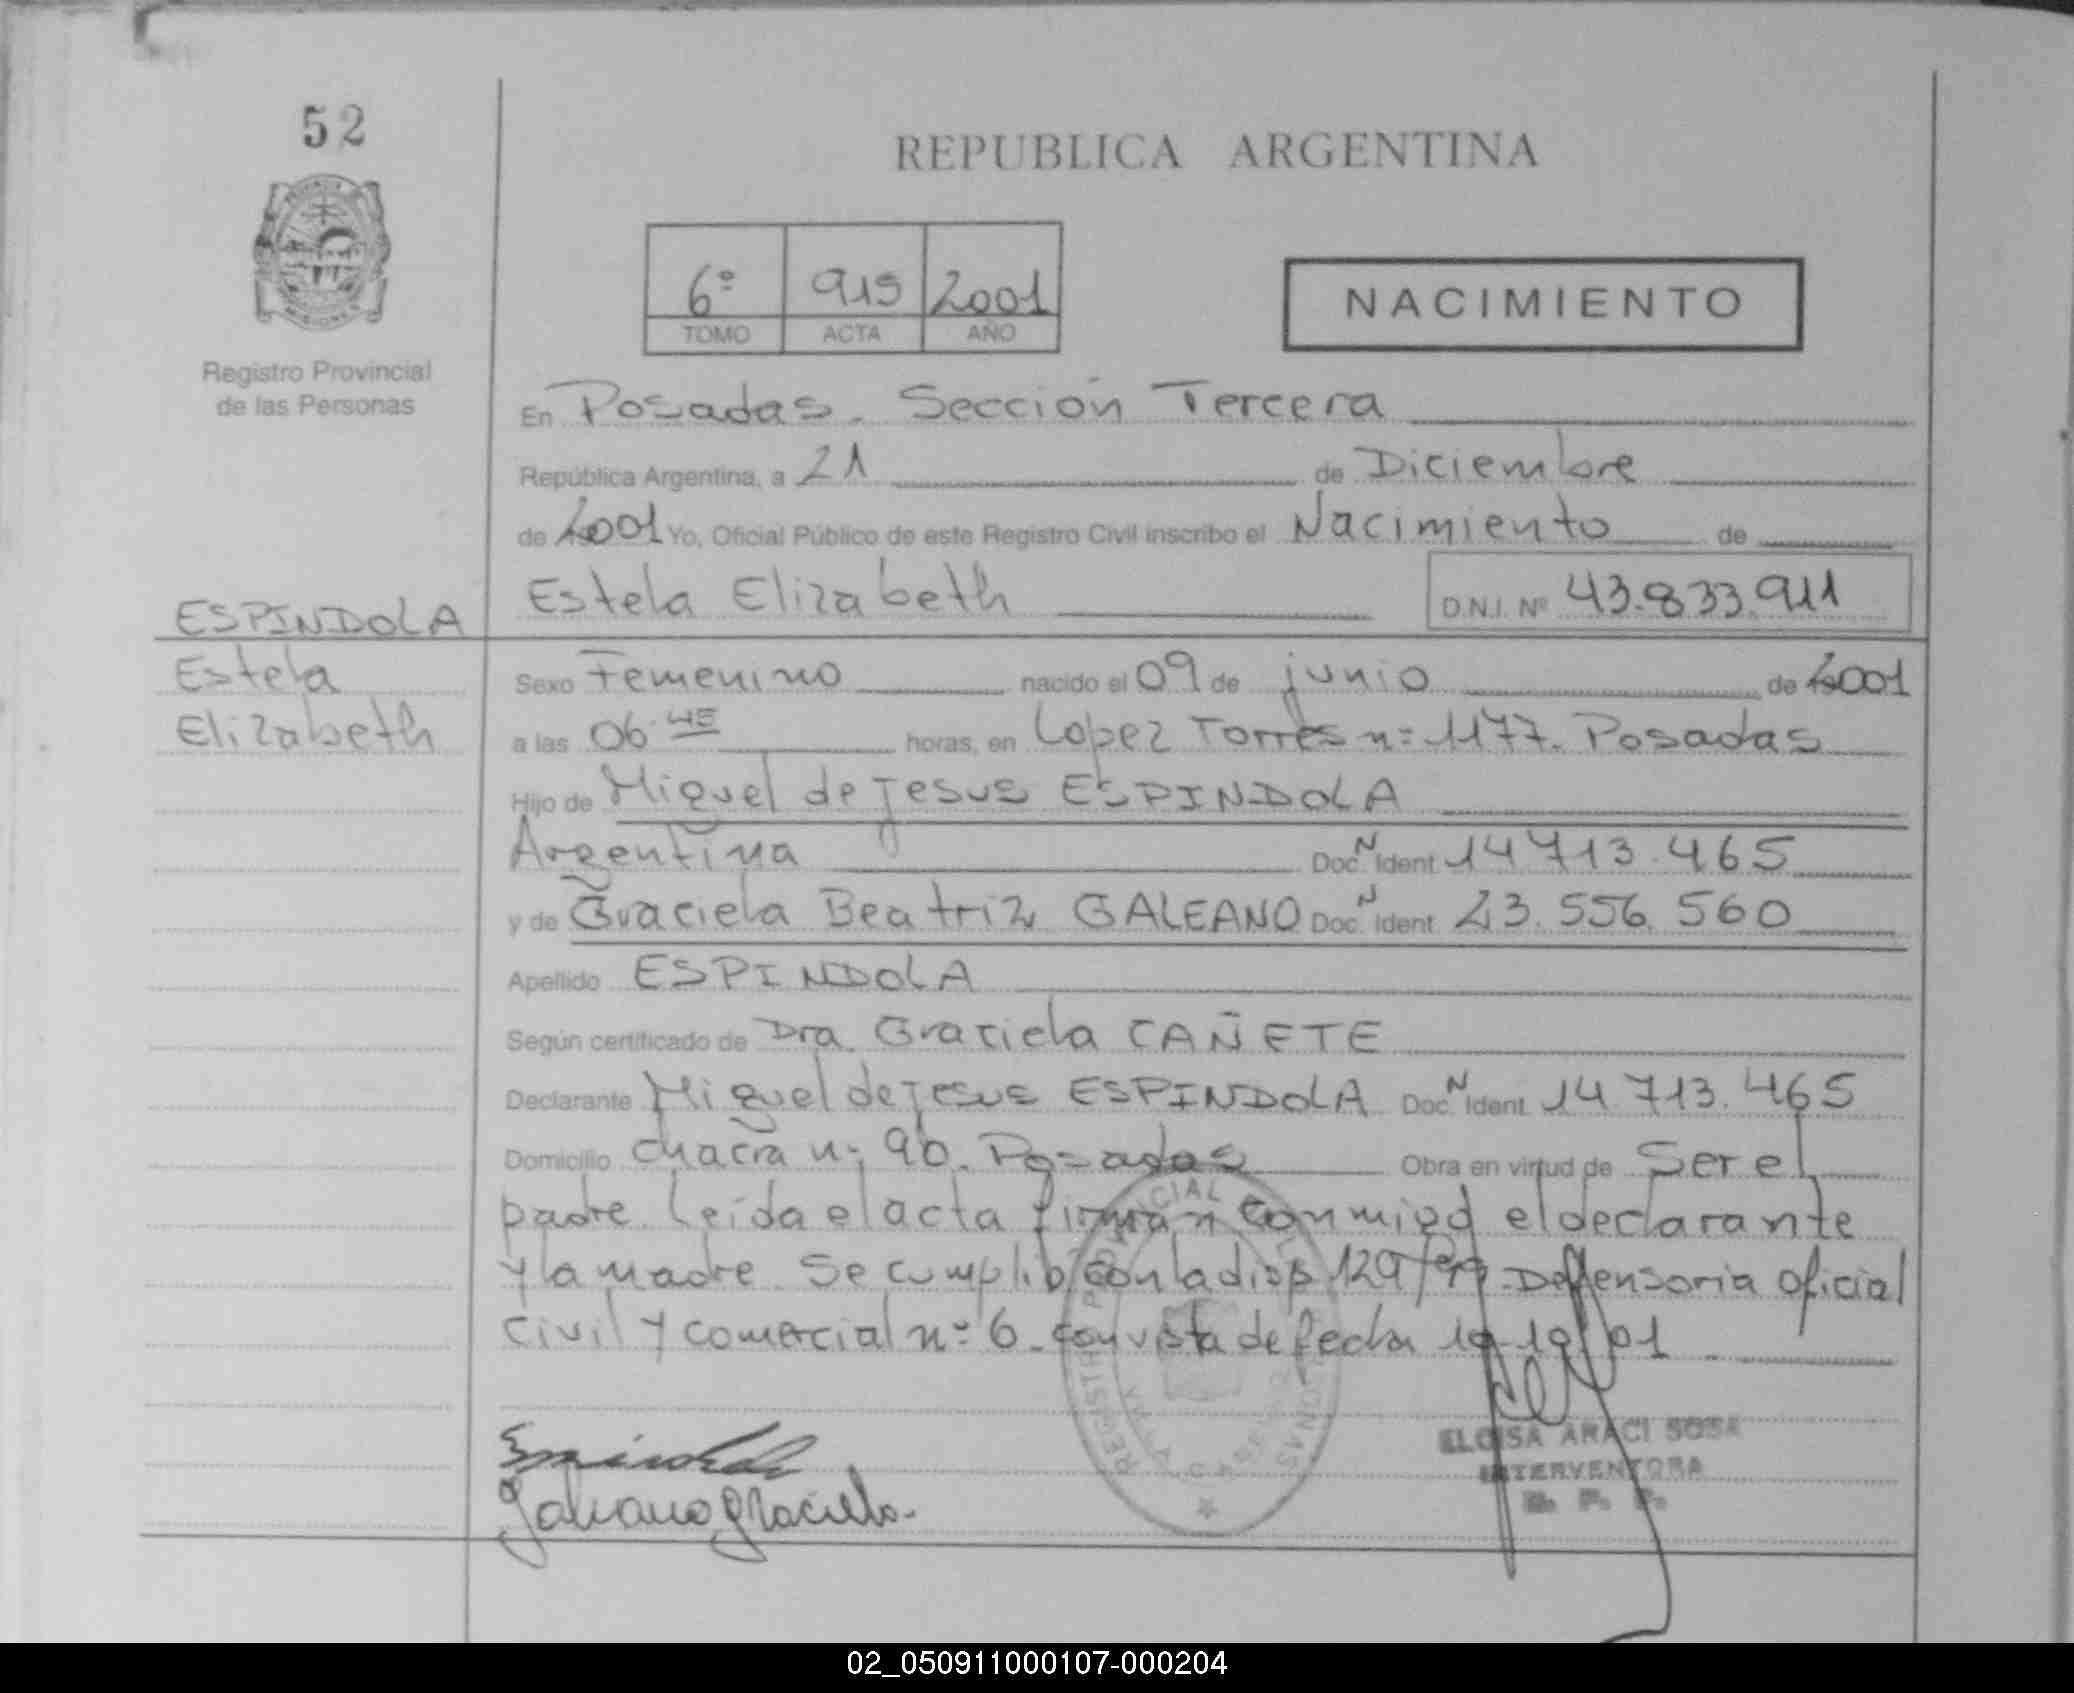 52
REPUBLICA ARGENTINA
6º 915 2001
TOMO ACTA AÑO
NACIMIENTO
MISIONES
Registro Provincial
de las Personas
En Posadas. Sección Tercera
República Argentina, a 21 de Diciembre
de 2001 Yo, Oficial Público de este Registro Civil inscribo el Nacimiento de
Estela Elizabeth D.N.I. Nº 43.833.911
ESPINDOLA
Estela
Elizabeth
Sexo Femenino nacido el 09 de junio de 2001
a las 06.45 horas, en Lopez Torres n: 1177. Posadas
Hijo de Miguel de Jesus ESPINDOLA
Argentina Doc. N Ident 14 713.465
y de Graciela Beatriz GALEANO Doc. N Ident 23.556.560
Apellido ESPINDOLA
Según certificado de Dra. Graciela CAÑETE
Declarante Miguel de Jesus ESPINDOLA Doc. N Ident 14 713.465
Domicilio chacra n: 90. Posadas Obra en virtud de Ser el
padre. Leída el acta firman conmigo el declarante
y la madre. Se cumplió con la disp 129/ Deffensoria oficial
civil y comercial n: 6. con vista de fecha 19-10/01
REGISTRO PROVINCIAL
PERSONAS
Galeano Graciela.
ELOISA ARACI SOSA
INTERVENTORA
02_050911000107-000204